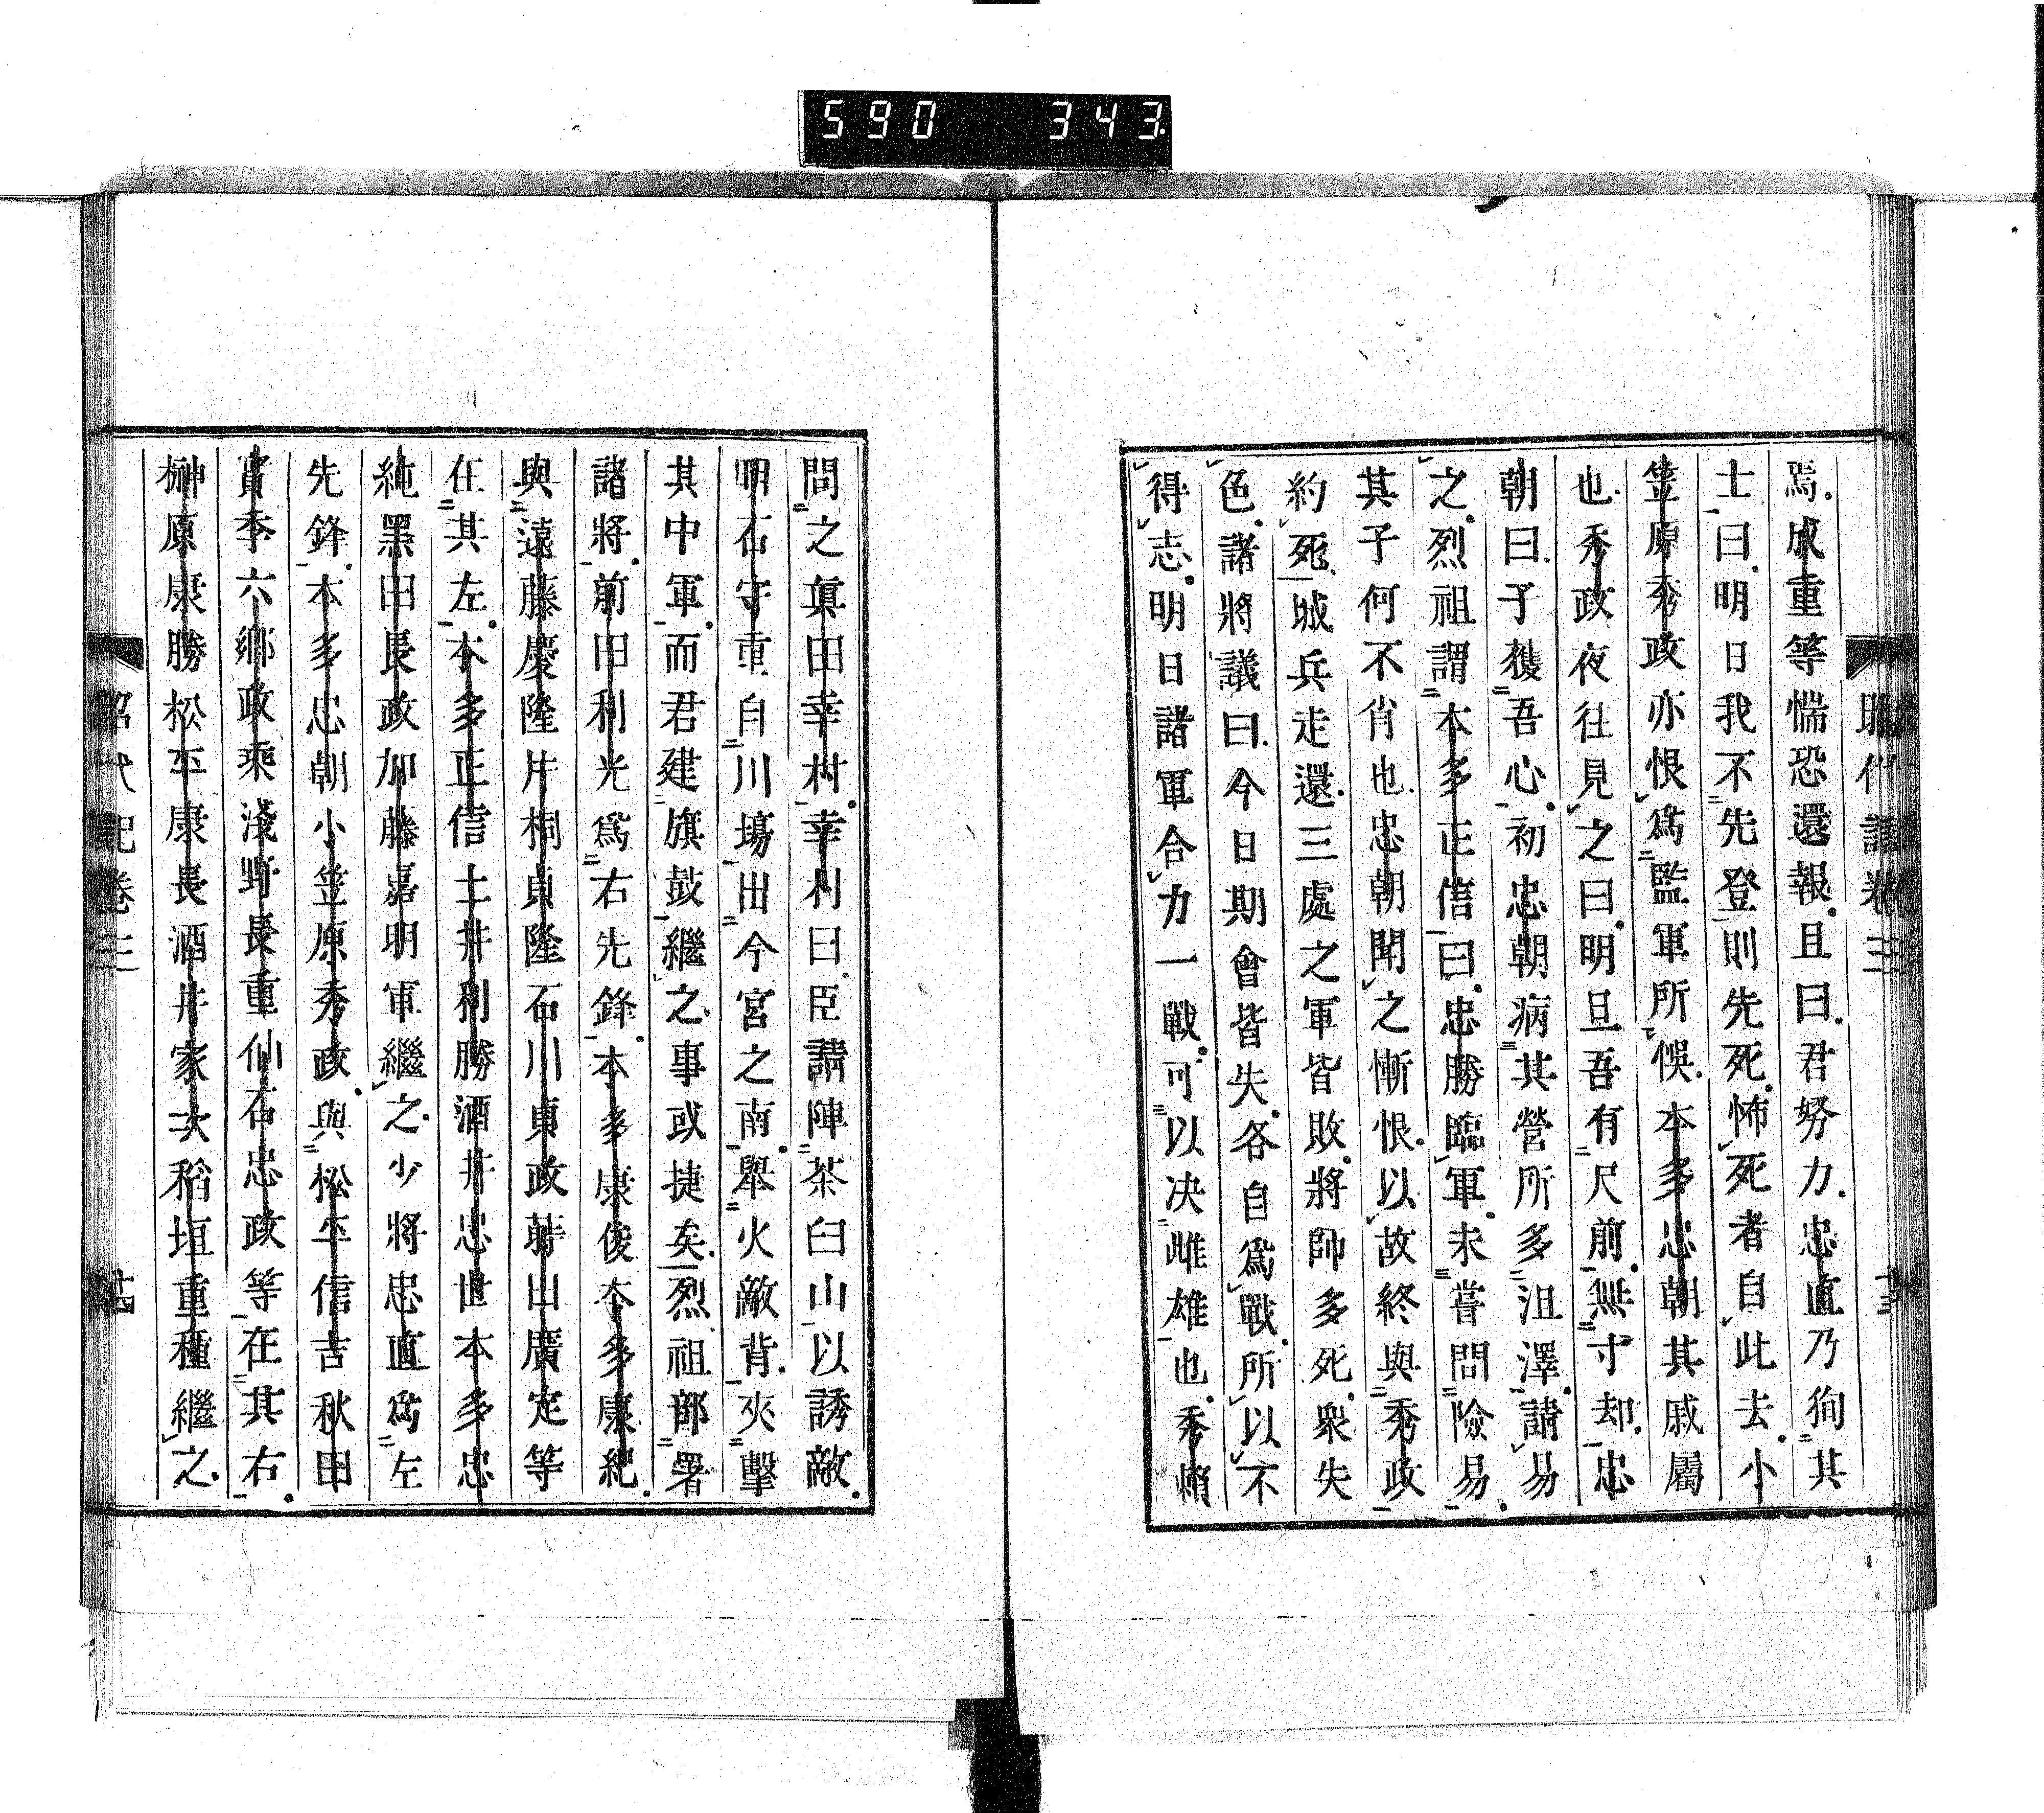 590 343
焉。成重等惴恐還報。且曰。君努力。忠直乃徇其
士曰。明日我不先登則先死。怖死者自此去。小
笠原秀政亦恨爲監軍所悞。本多忠朝其戚屬
也。秀政夜往見之曰。明旦吾有尺前。無寸却。忠
朝曰。子獲吾心。初忠朝病其營所多沮澤。請易
之。烈祖謂本多正信曰。忠勝臨軍。未嘗問險易。
其子何不肖也。忠朝聞之慚恨。以故終與秀政
約死。城兵走還。三處之軍皆敗。將帥多死。衆失
色。諸將議曰。今日期會皆失。各自爲戰。所以不
得志。明日諸軍合力一戰。可以决雌雄也。秀賴
問之眞田幸村。幸村曰。臣請陣茶臼山以誘敵。
明石守重自川場出今宮之南。舉火敵背。夾擊
其中軍。而君建旗鼓繼之。事或捷矣。烈祖部署
諸將。前田利光爲右先鋒。本多康俊本多康紀。
與遠藤慶隆片桐貞隆石川東政蒔田廣定等
在其左。本多正信土井利勝酒井忠世本多忠
純黑田長政加藤嘉明軍繼之。少將忠直爲左
先鋒。本多忠朝小笠原秀政。與松平信吉秋田
實季六鄉政乘淺野長重仙石忠政等在其右。
榊原康勝松平康長酒井家次稻垣重種繼之。
昭代記卷三